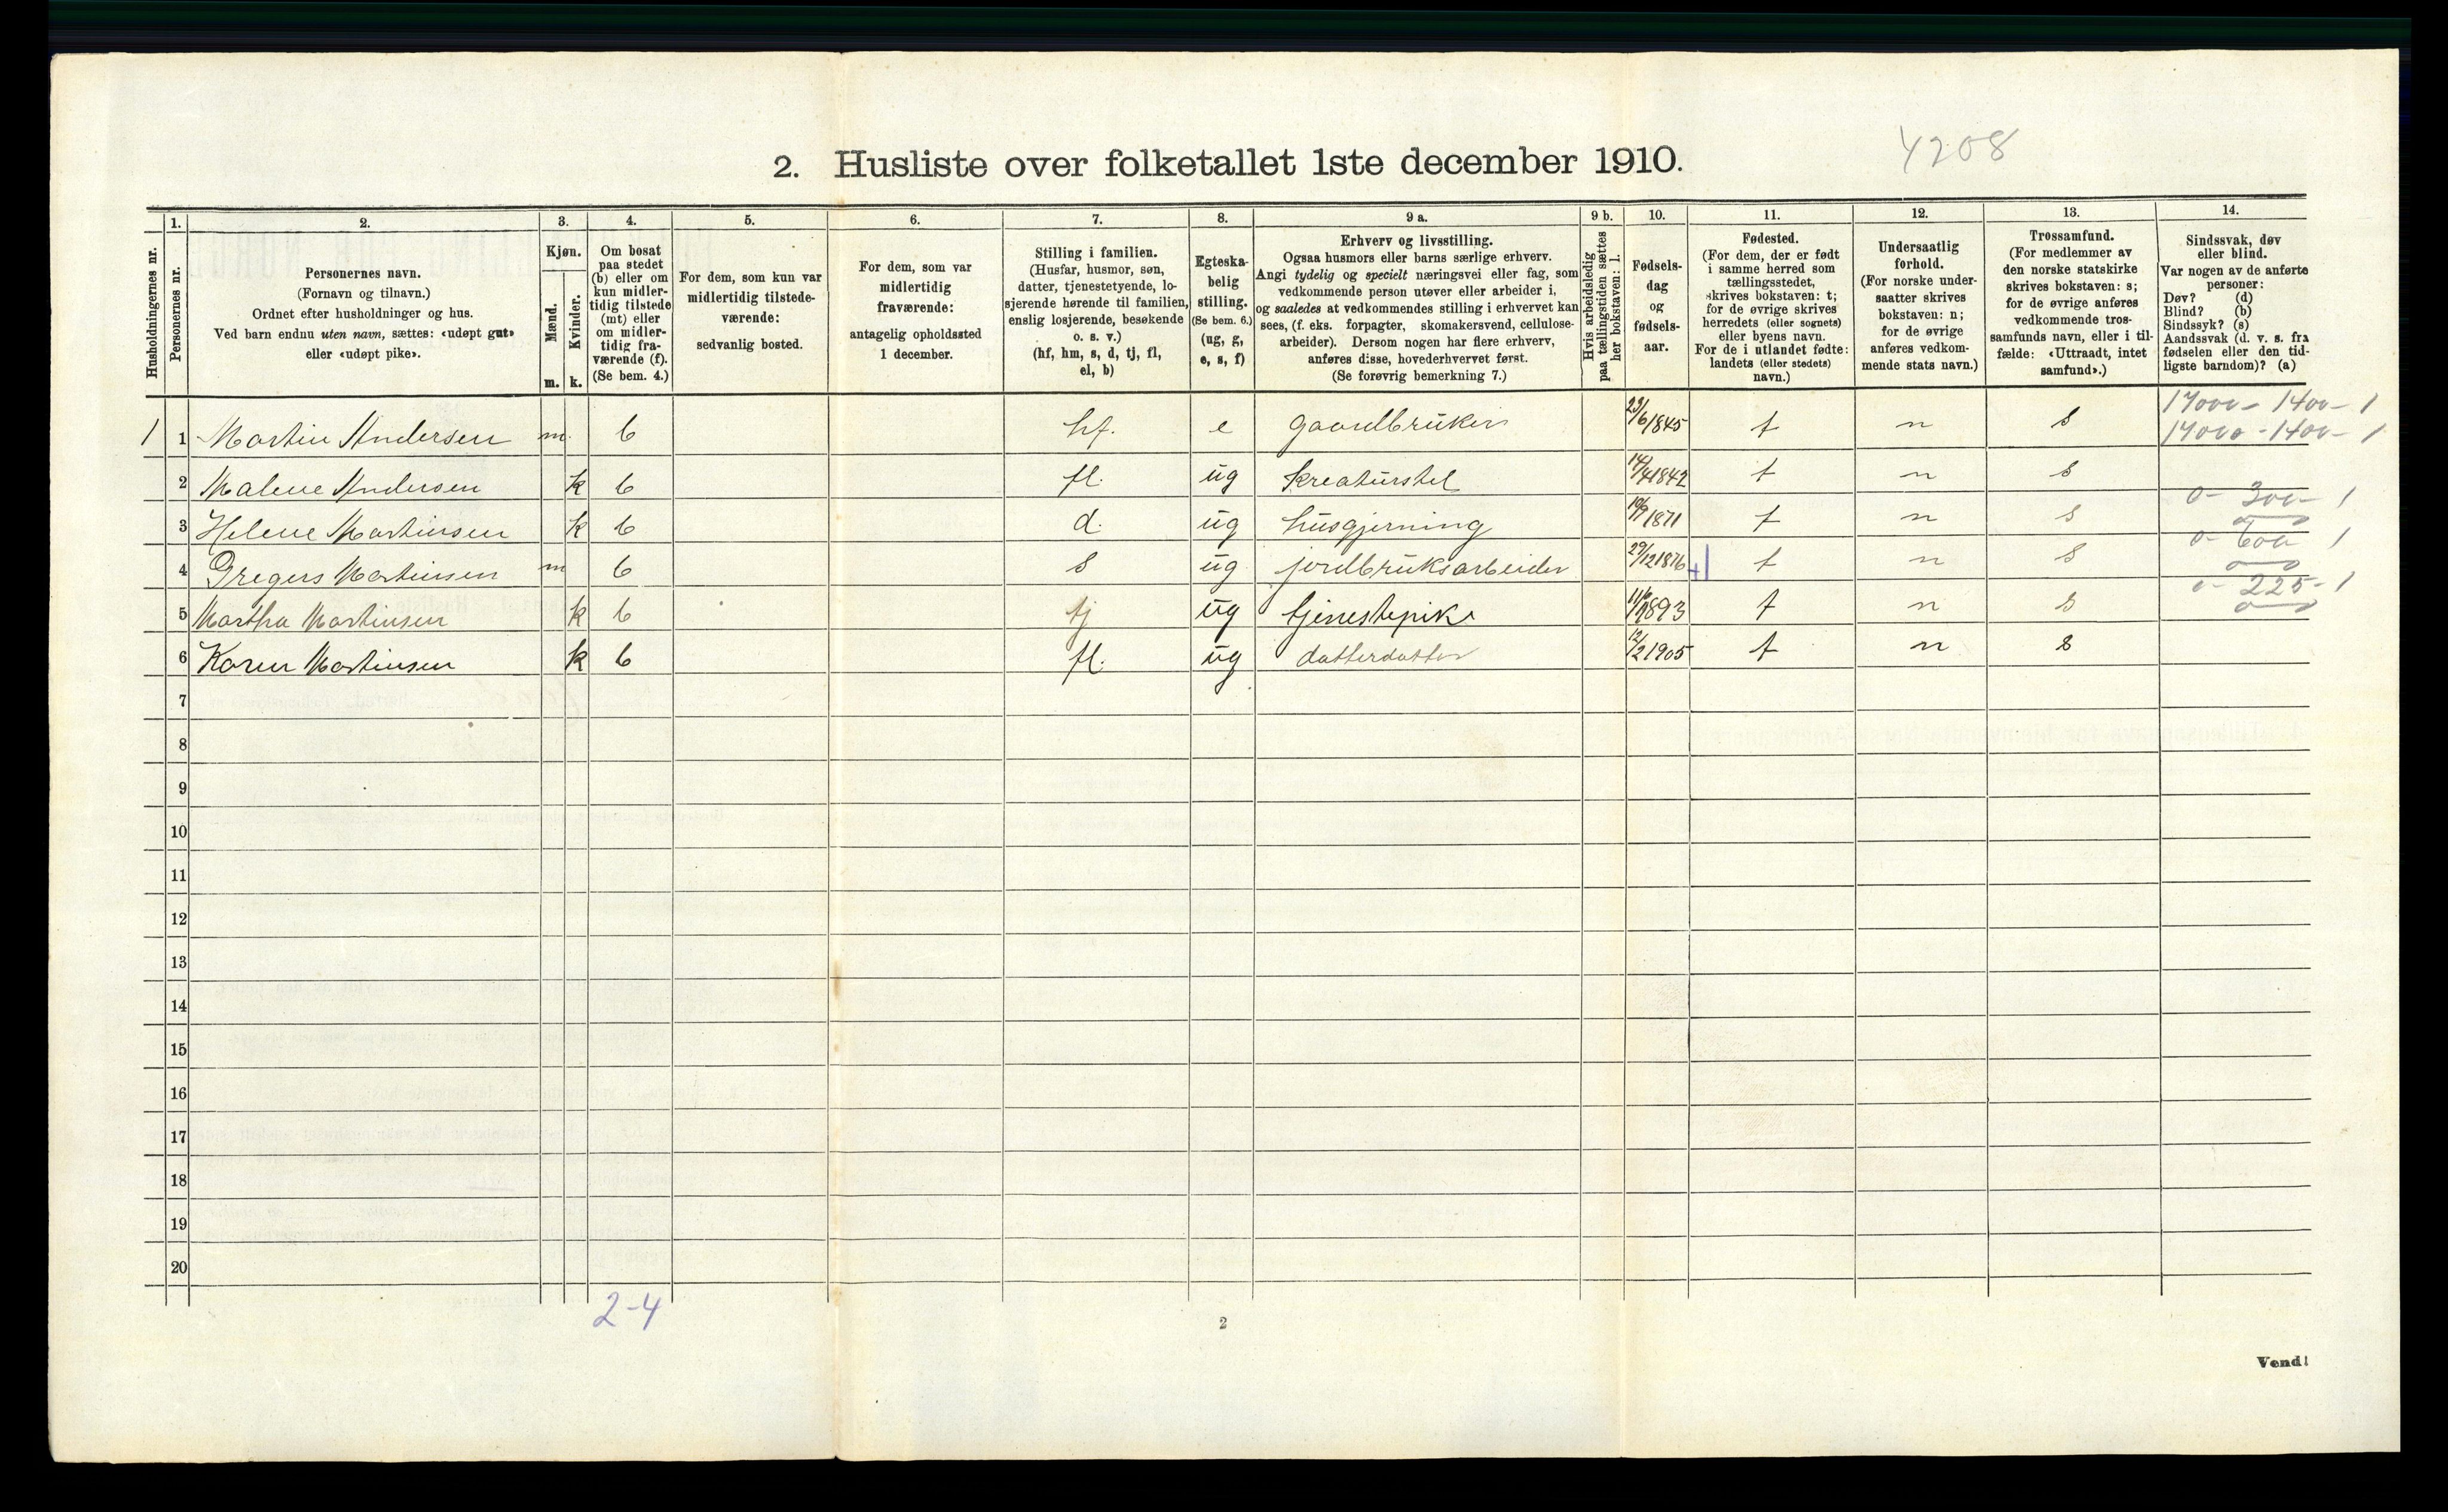 4208
2. Husliste over folketallet 1ste december 1910.
Husholdningernes nr.
1.
Personernes nr.
2.
Personernes navn.
(Fornavn og tilnavn.)
Ordnet efter husholdninger og hus.
Ved barn endnu uten navn, sættes: «udøpt gut»
eller «udøpt pike».
3.
Kjøn.
Mænd.
Kvinder.
m. k.
4.
Om bosat
paa stedet
(b) eller om
kun midler-
tidig tilstede
(mt) eller
om midler-
tidig fra-
værende (f).
(Se bem. 4.)
5.
For dem, som kun var
midlertidig tilstede-
værende:
sedvanlig bosted.
6.
For dem, som var
midlertidig
fraværende:
antagelig opholdssted
1 december.
7.
Stilling i familien.
(Husfar, husmor, søn,
datter, tjenestetyende, lo-
sjerende hørende til familien,
enslig losjerende, besøkende
o. s. v.)
(hf, hm, s, d, tj, fl,
el, b)
8.
Egteska-
belig
stilling.
(Se bem. 6.)
(ug, g,
e, s, f)
9 a.
Erhverv og livsstilling.
Ogsaa husmors eller barns særlige erhverv.
Angi tydelig og specielt næringsvei eller fag, som
vedkommende person utøver eller arbeider i,
og saaledes at vedkommendes stilling i erhvervet kan
sees, (f. eks. forpagter, skomakersvend, cellulose-
arbeider). Dersom nogen har flere erhverv,
anføres disse, hovederhvervet først.
(Se forøvrig bemerkning 7.)
9 b.
Hvis arbeidsledig
paa tællingstiden sættes
her bokstaven: l.
10.
Fødsels-
dag
og
fødsels-
aar.
11.
Fødested.
(For dem, der er født
i samme herred som
tællingsstedet,
skrives bokstaven: t;
for de øvrige skrives
herredets (eller sognets)
eller byens navn.
For de i utlandet fødte:
landets (eller stedets)
navn.)
12.
Undersaatlig
forhold.
(For norske under-
saatter skrives
bokstaven: n;
for de øvrige
anføres vedkom-
mende stats navn.)
13.
Trossamfund.
(For medlemmer av
den norske statskirke
skrives bokstaven: s;
for de øvrige anføres
vedkommende tros-
samfunds navn, eller i til-
fælde: «Uttraadt, intet
samfund».)
14.
Sindssvak, døv
eller blind.
Var nogen av de anførte
personer:
Døv? (d)
Blind? (b)
Sindssyk? (s)
Aandssvak (d. v. s. fra
fødselen eller den tid-
ligste barndom)? (a)
1 1 Martin Andersen m. b hf. e gaardbruker 23/6 1845 t n s
2 Malene Andersen k b fl. ug kreaturstel 14/4 1842 t n s
3 Helene Martinsen k b d. ug husgjerning 1871 t n s 0 - 300 - 1
4 Gregers Martinsen m b s ug jordbruksarbeider 29/12 1876 t n s 0 - 600 1
5 Martha Martinsen k b tj ug tjenestepike 1893 t n s 0 - 225 - 1
6 Karen Martinsen k b fl. ug datterdatter 12/2 1905 t n s
7
8
9
10
11
12
13
14
15
16
17
18
19
20
2-4
2
Vend!